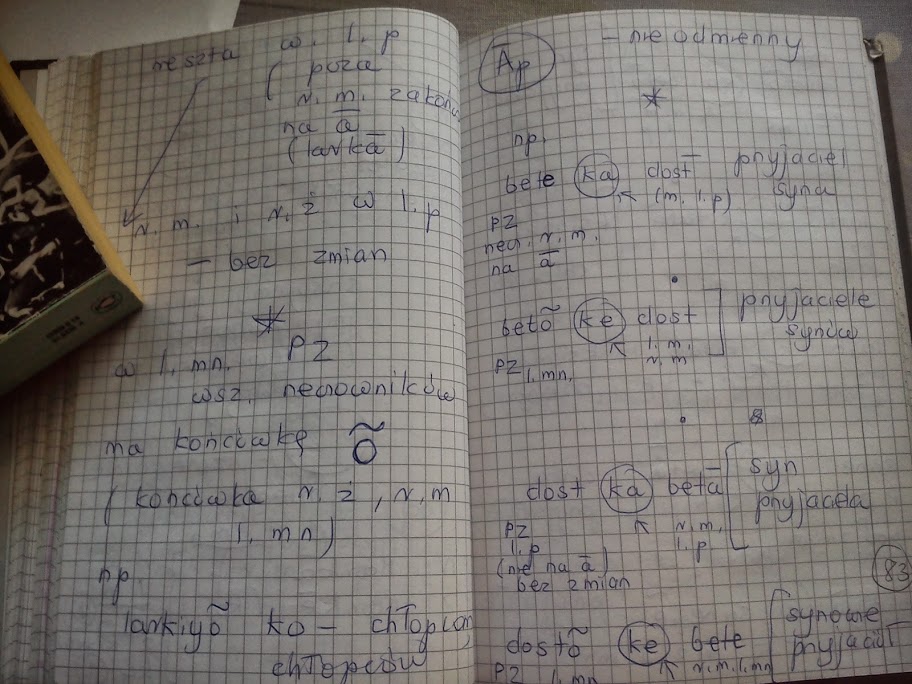 reszta w l.p
( poza
r.m. zakończ
na ā
(larkā)
r.m. i r.ż w l.p
– bez zmian
w l.mn. PZ
wsz. rzeczowników
ma końcówkę õ
(końcówka r.ż, r.m
l.mn)
np
larkiyõ ko – chłopcom,
chłopców
Āp – nieodmienny
np.
bete kā dost przyjaciel
(m. l.p) syna
PZ
rzecz. r.m.
na ā
betõ ke dost przyjaciele
synów
l.m.
r.m
PZ l.mn.
dost kā betā syn
przyjaciela
PZ r.m.
l.p l.p.
(nie na ā)
bez zmian
83
dostõ ke bete synowie
przyjaciół
PZ l.mn r.m.l.mn